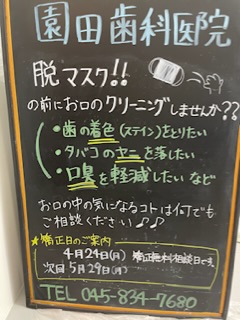 園田歯科医院
脱マスク!!
の前にお口のクリーニングしませんか??
・歯の着色(ステイン)をとりたい
・タバコのヤニを落したい
・口臭を軽減したい など
お口の中の気になるコトは何でも
ご相談ください♪♪
★矯正日のご案内
4月24日(月) 矯正無料相談日です。
次回 5月29日(月)
TEL 045-834-7680